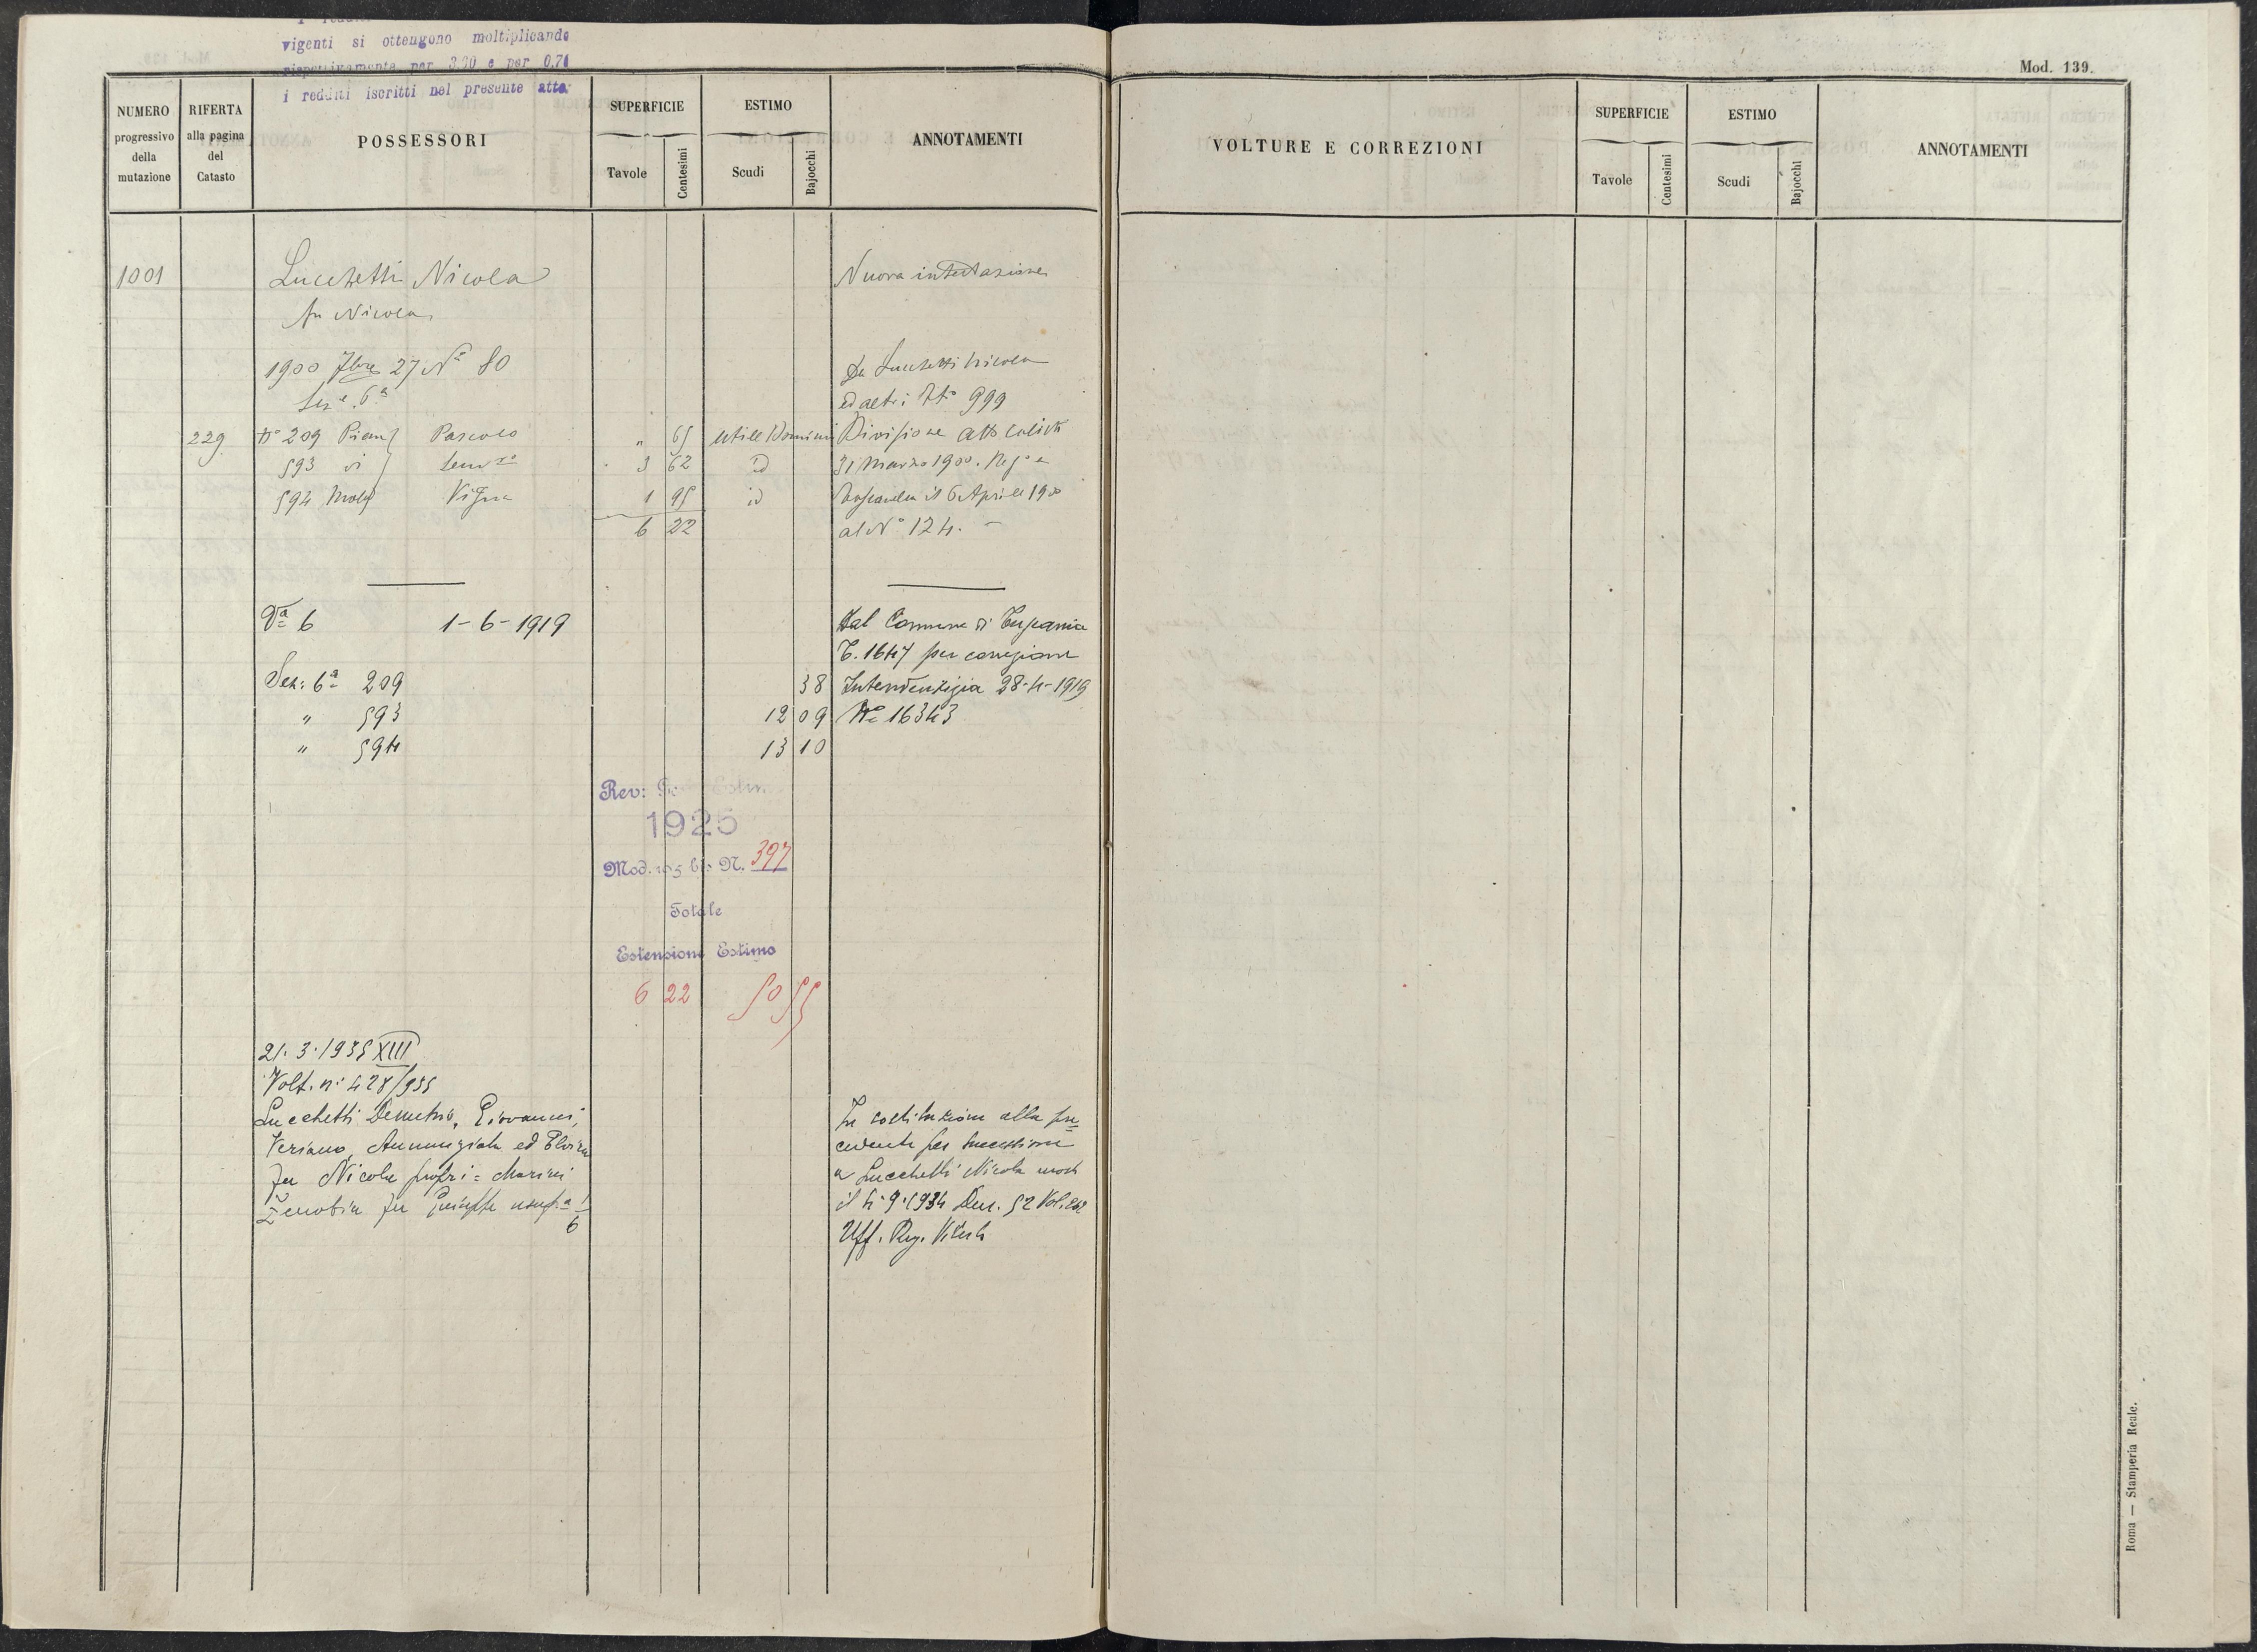 vigenti si ottengono moltiplicando
rispettivamente per 3.30 e per 0.74
i redditi iscritti nel presente atto.
Mod. 139.
NUMERO progressivo della mutazione
RIFERTA alla pagina del Catasto
POSSESSORI
SUPERFICIE
Tavole
Centesimi
ESTIMO
Scudi
Bajocchi
ANNOTAMENTI
VOLTURE E CORREZIONI
SUPERFICIE
Tavole
Centesimi
ESTIMO
Scudi
Bajocchi
ANNOTAMENTI
1001 Lucchetti Nicola Nuova intestazione
fu Nicola
1900 7bre 27 N° 80 Da Lucchetti Nicola
Sez.e 6a ed altri Nto 999
229 N° 209 Pian Pascolo " 65 Utile Dominio Divisione atto
593 vi Semvo 3 62 id 31 Marzo 1900. Rego a
594 Vigna 1 95 id Toscanella il 6 Aprile 1900
6 22 al N° 124. -
Va 6 1-6-1919 Dal Comune di Tuscania
P. 1647 per correzione
Sez: 6a 209 38 Intendentizia 28-4-1919
" 593 12 09 N° 16343
" 594 13 10
Rev: Estim
1925
Mod. 105 bis N. 397
Totale
Estensione Estimo
6 22 50 55
21.3.1935 XIII
Volt. n. 428/935
Lucchetti Demetrio, Giovanni, In sostituzione alla pre=
Veriano, Annunziata ed Elvira cedente per successione
fu Nicola propri= Marini a Lucchetti Nicola morto
Zenobia fu Giuseppe usufa il 4.9.1934 Den. 52 Vol.
6 Uff. Reg. Viterbo
Roma — Stamperia Reale.